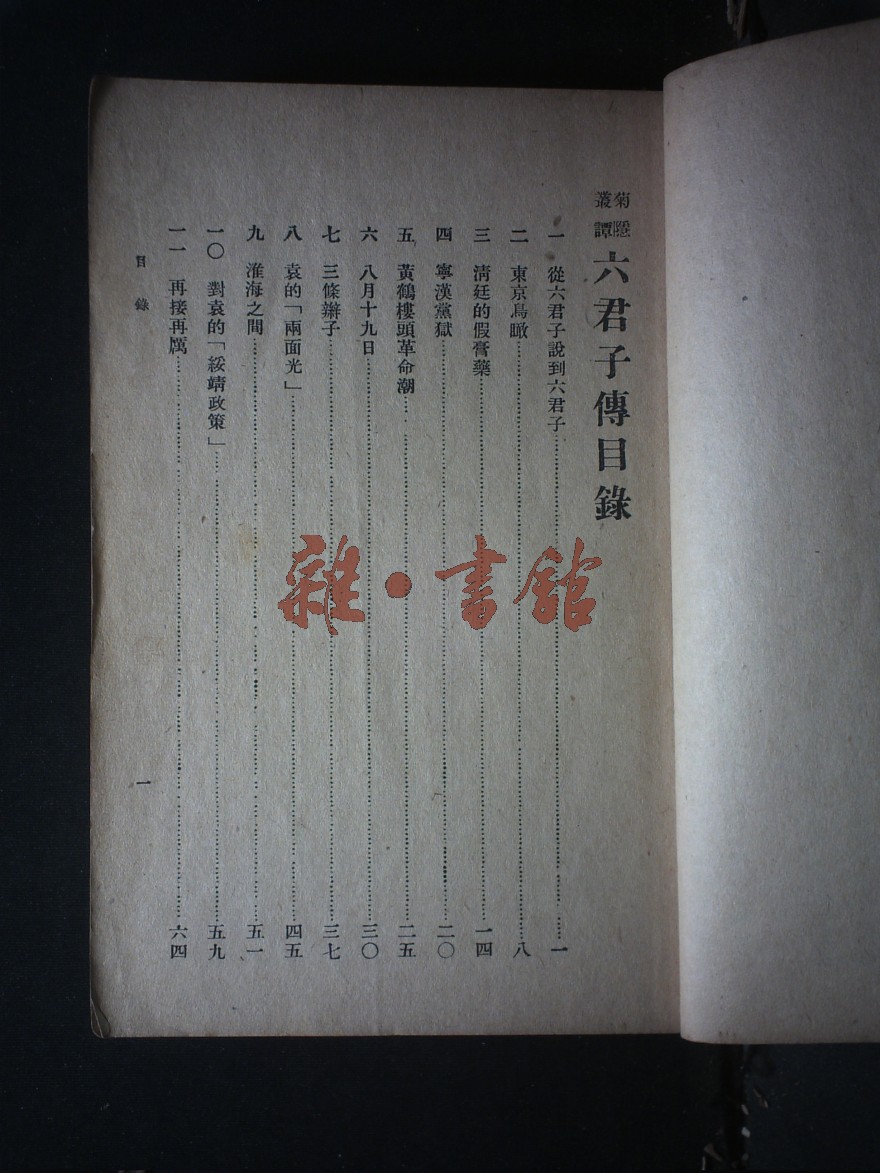 菊隱叢譚 六君子傳目錄
一 從六君子說到六君子 一
二 東京鳥瞰 八
三 清廷的假膏藥 一四
四 寧漢黨獄 二〇
五 黃鶴樓頭革命潮 二五
六 八月十九日 三〇
七 三條辮子 三七
八 袁的「兩面光」 四五
九 淮海之間 五一
一〇 對袁的「綏靖政策」 五九
一一 再接再厲 六四
目錄 一
雜・書館